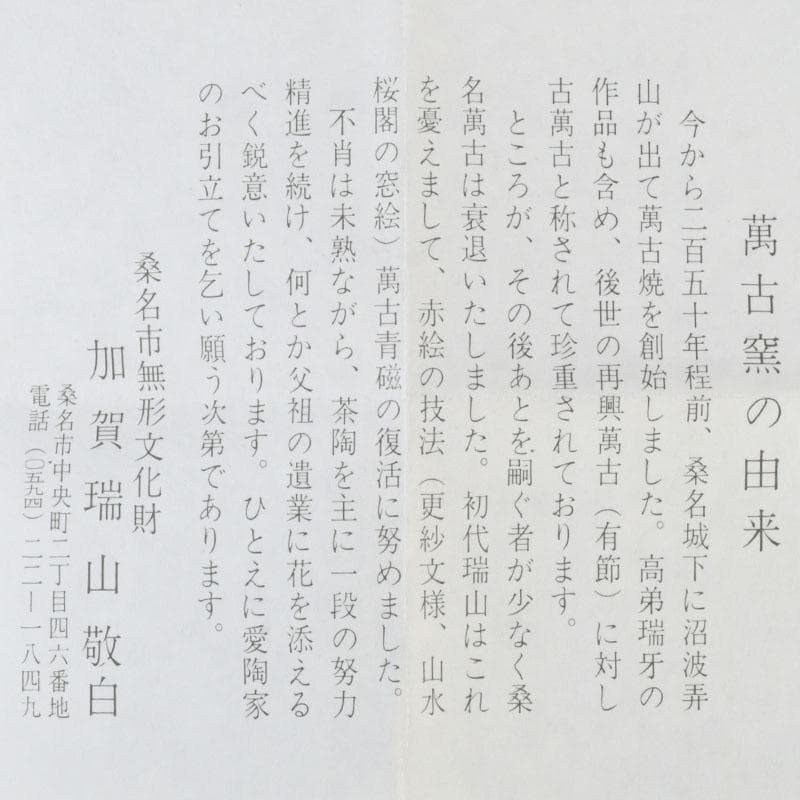 萬古窯の由来
今から二百五十年程前、桑名城下に沼波弄
山が出て萬古焼を創始しました。高弟瑞牙の
作品も含め、後世の再興萬古（有節）に対し
古萬古と称されて珍重されております。
ところが、その後あとを嗣ぐ者が少なく桑
名萬古は衰退いたしました。初代瑞山はこれ
を憂えまして、赤絵の技法（更紗文様、山水
桜閣の窓絵）萬古青磁の復活に努めました。
不肖は未熟ながら、茶陶を主に一段の努力
精進を続け、何とか父祖の遺業に花を添える
べく鋭意いたしております。ひとえに愛陶家
のお引立てを乞い願う次第であります。
桑名市無形文化財
加賀瑞山敬白
桑名市中央町二丁目四六番地
電話（〇五九四）二二―一八四九